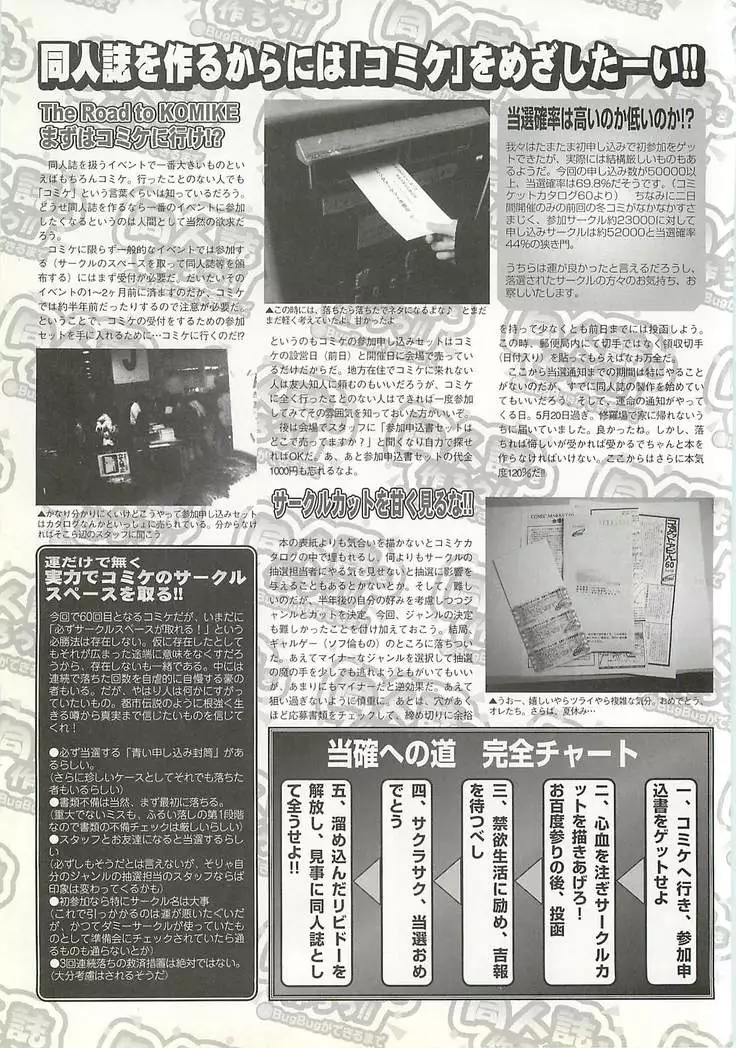 同人誌を作るからには「コミケ」をめざしたーい!!
The Road to KOMIKE
まずはコミケに行け!?
同人誌を扱うイベントで一番大きいものとい
えばもちろんコミケ。行ったことのない人でも
「コミケ」という言葉くらいは知っているだろう。
どうせ同人誌を作るなら一番のイベントに参加
したくなるというのは人間として当然の欲求だ
ろう。
コミケに限らず一般的なイベントでは参加す
る（サークルのスペースを取って同人誌等を頒
布する）にはまず受付が必要だ。だいたいその
イベントの1〜2ヶ月前に済ますのだが、コミケ
では約半年前だったりするので注意が必要だ。
ということで、コミケの受付をするための参加
セットを手に入れるために…コミケに行くのだ!?
▲かなり分かりにくいけどこうやって参加申し込みセット
はカタログなんかといっしょに売られている。分からなけ
ればそこら辺のスタッフに聞こう
▲この時には、落ちたら落ちたでネタになるよな♪　とまだ
まだ軽く考えていたよ。甘かったよ
というのもコミケの参加申し込みセットはコミケ
の設営日（前日）と開催日に会場で売ってい
るだけだからだ。地方在住でコミケに来れない
人は友人知人に頼むのもいいだろうが、コミケ
に全く行ったことのない人はできれば一度参加
してみてその雰囲気を知っておいた方がいいぞ。
後は会場でスタッフに「参加申込書セットは
どこで売ってますか？」と聞くなり自力で探せ
ればOKだ。あ、あと参加申込書セットの代金
1000円も忘れるなよ。
当選確率は高いのか低いのか!?
我々はたまたま初申し込みで初参加をゲッ
トできたが、実際には結構厳しいものもあ
るようだ。今回の申し込み数が50000以
上、当選確率は69.8％だそうです。（コミ
ケットカタログ60より）　ちなみに二日
間開催のみの前回の冬コミがなかなかすさ
まじく、参加サークル約23000に対して
申し込みサークルは約52000と当選確率
44％の狭き門。
うちらは運が良かったと言えるだろうし、
落選されたサークルの方々のお気持ち、お
察しいたします。
サークルカットを甘く見るな!!
本の表紙よりも気合いを描かないとコミケカ
タログの中で埋まれるし、何よりもサークルの
抽選担当者にやる気を見せないと抽選に影響を
与えることもあるとかないとか。そして、難し
いのだが、半年後の自分の好みを考慮しつつジ
ャンルとカットを決定。今回、ジャンルの決定
も難しかったことを付け加えておこう。結局、
ギャルゲー（ソフ倫もの）のところに落ちつい
た。あえてマイナーなジャンルを選択して抽選
の魔の手を少しでも逃れようともがいてもいい
が、あまりにもマイナーだと逆効果だ。あえて
狙い過ぎないように慎重に。あとは、穴があく
ほど応募書類をチェックして、締め切りに余裕
を持って少なくとも前日までには投函しよう。
この時、郵便局内にて切手ではなく領収切手
（日付入り）を貼ってもらえばなお万全だ。
ここから当選通知までの期間は特にやること
がないのだが、すでに同人誌の製作を始めてい
てもいいだろう。そして、運命の通知がやって
くる日。5月20日過ぎ。修羅場で家に帰れないう
ちに届いていました。良かったね。しかし、落
ちれば悔しいが受かれば受かるでちゃんと本を
作らなければいけない。ここからはさらに本気
度120％だ!!
▲うおー、嬉しいやらツライやら複雑な気分。おめでとう
オレたち。さらば、夏休み…
運だけで無く
実力でコミケのサークル
スペースを取る!!
今回で60回目となるコミケだが、いまだに
「必ずサークルスペースが取れる！」という
必勝法は存在しない。仮に存在したとして
もそれが広まった途端に意味をなくすだろ
うから、存在しないも一緒である。中には
連続で落ちた回数を自虐的に自慢する豪の
者もいる。だが、やはり人は何かにすがっ
ていたいもの。都市伝説のように根強く生
きる噂から真実まで信じたいものを信じて
くれ！
●必ず当選する「青い申し込み封筒」があ
るらしい。
（さらに珍しいケースとしてそれでも落ちた
者もいるらしい）
●書類不備は当然、まず最初に落ちる。
（重大でないミスも、ふるい落しの第1段階
なので書類の不備チェックは厳しいらしい）
●スタッフとお友達になると当選するらし
い
（必ずしもそうだとは言えないが、そりゃ自
分のジャンルの抽選担当のスタッフならば
印象は変わってくるかも）
●初参加なら特にサークル名は大事
（これで引っかかるのは運が悪いたぐいだ
が、かつてダミーサークルが使っていたも
のとして準備会にチェックされていたら通
るものも通らないとか）
●3回連続落ちの救済措置は絶対ではない。
（大分考慮はされるそうだ）
当確への道　完全チャート
一、コミケへ行き、参加申
込書をゲットせよ
二、心血を注ぎサークルカ
ットを描きあげろ！
お百度参りの後、投函
三、禁欲生活に励め、吉報
を待つべし
四、サクラサク、当選おめ
でとう
五、溜め込んだリビドーを
解放し、見事に同人誌とし
て全うせよ!!